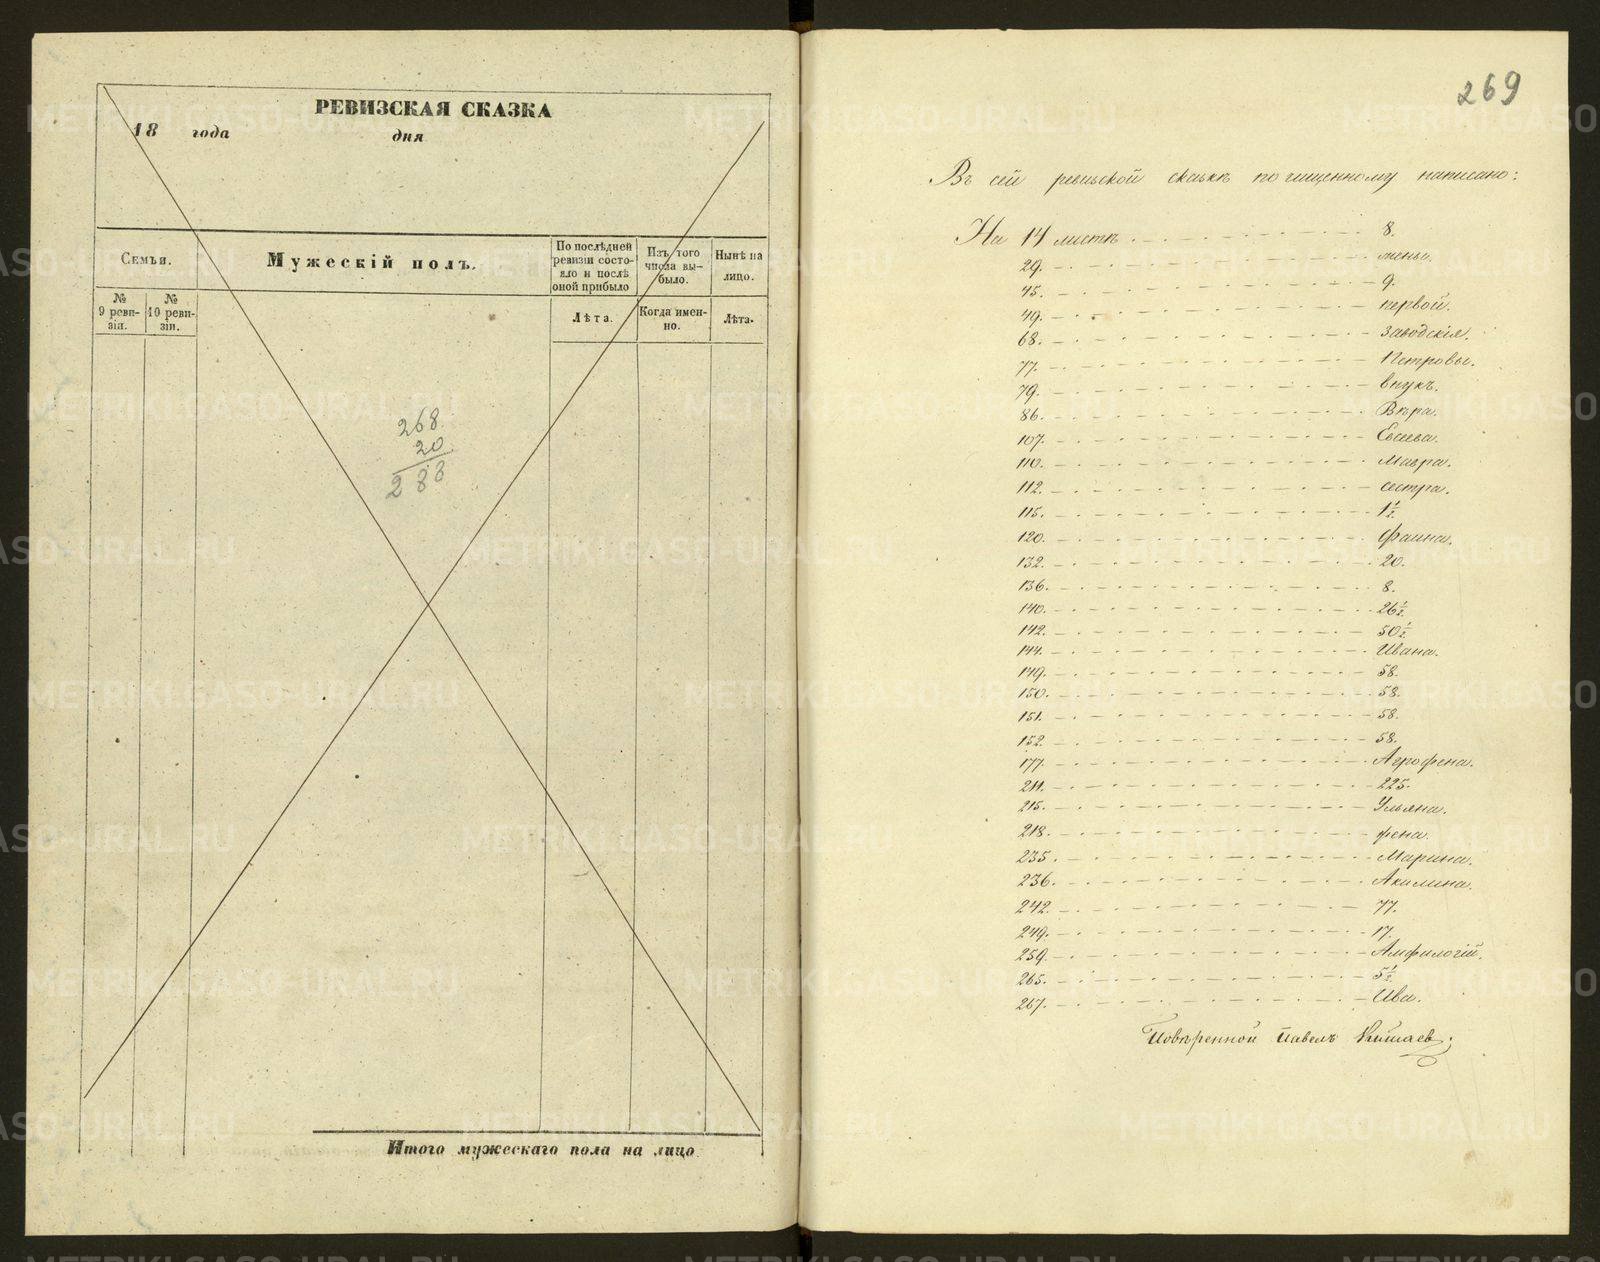 РЕВИЗСКАЯ СКАЗКА
18 года дня
Семьи.
Мужескій полъ.
По послѣдней ревизіи состояло и послѣ оной прибыло
Изъ того числа выбыло.
Нынѣ на лицо.
№ 9 ревизіи.
№ 10 ревизіи.
Лѣта.
Когда именно.
Лѣта.
268
20
288
Итого мужескаго пола на лицо
269
Въ сей ревизской сказкѣ по чищенному написано:
На 14 листѣ 8.
29. женье.
45. 9.
49. первой.
68. Заводскія.
77. Петровы.
79. внукъ.
86. Вѣра.
107. Евсеева.
110. Мавра.
112. сестра.
115. 1½
120. Фаина.
132. 20.
136. 8.
140. 26½
142. 50½
144. Ивана.
149. 58.
150. 58.
151. 58.
152. 58.
177. Агрофена.
211. 225.
215. Ульяна.
218. фена.
235. Марина.
236. Акилина.
242. 77.
249. 17.
259. Амфилогій.
265. 5½
267. Ива.
Повѣренной Павелъ
METRIKI.GASO-URAL.RU